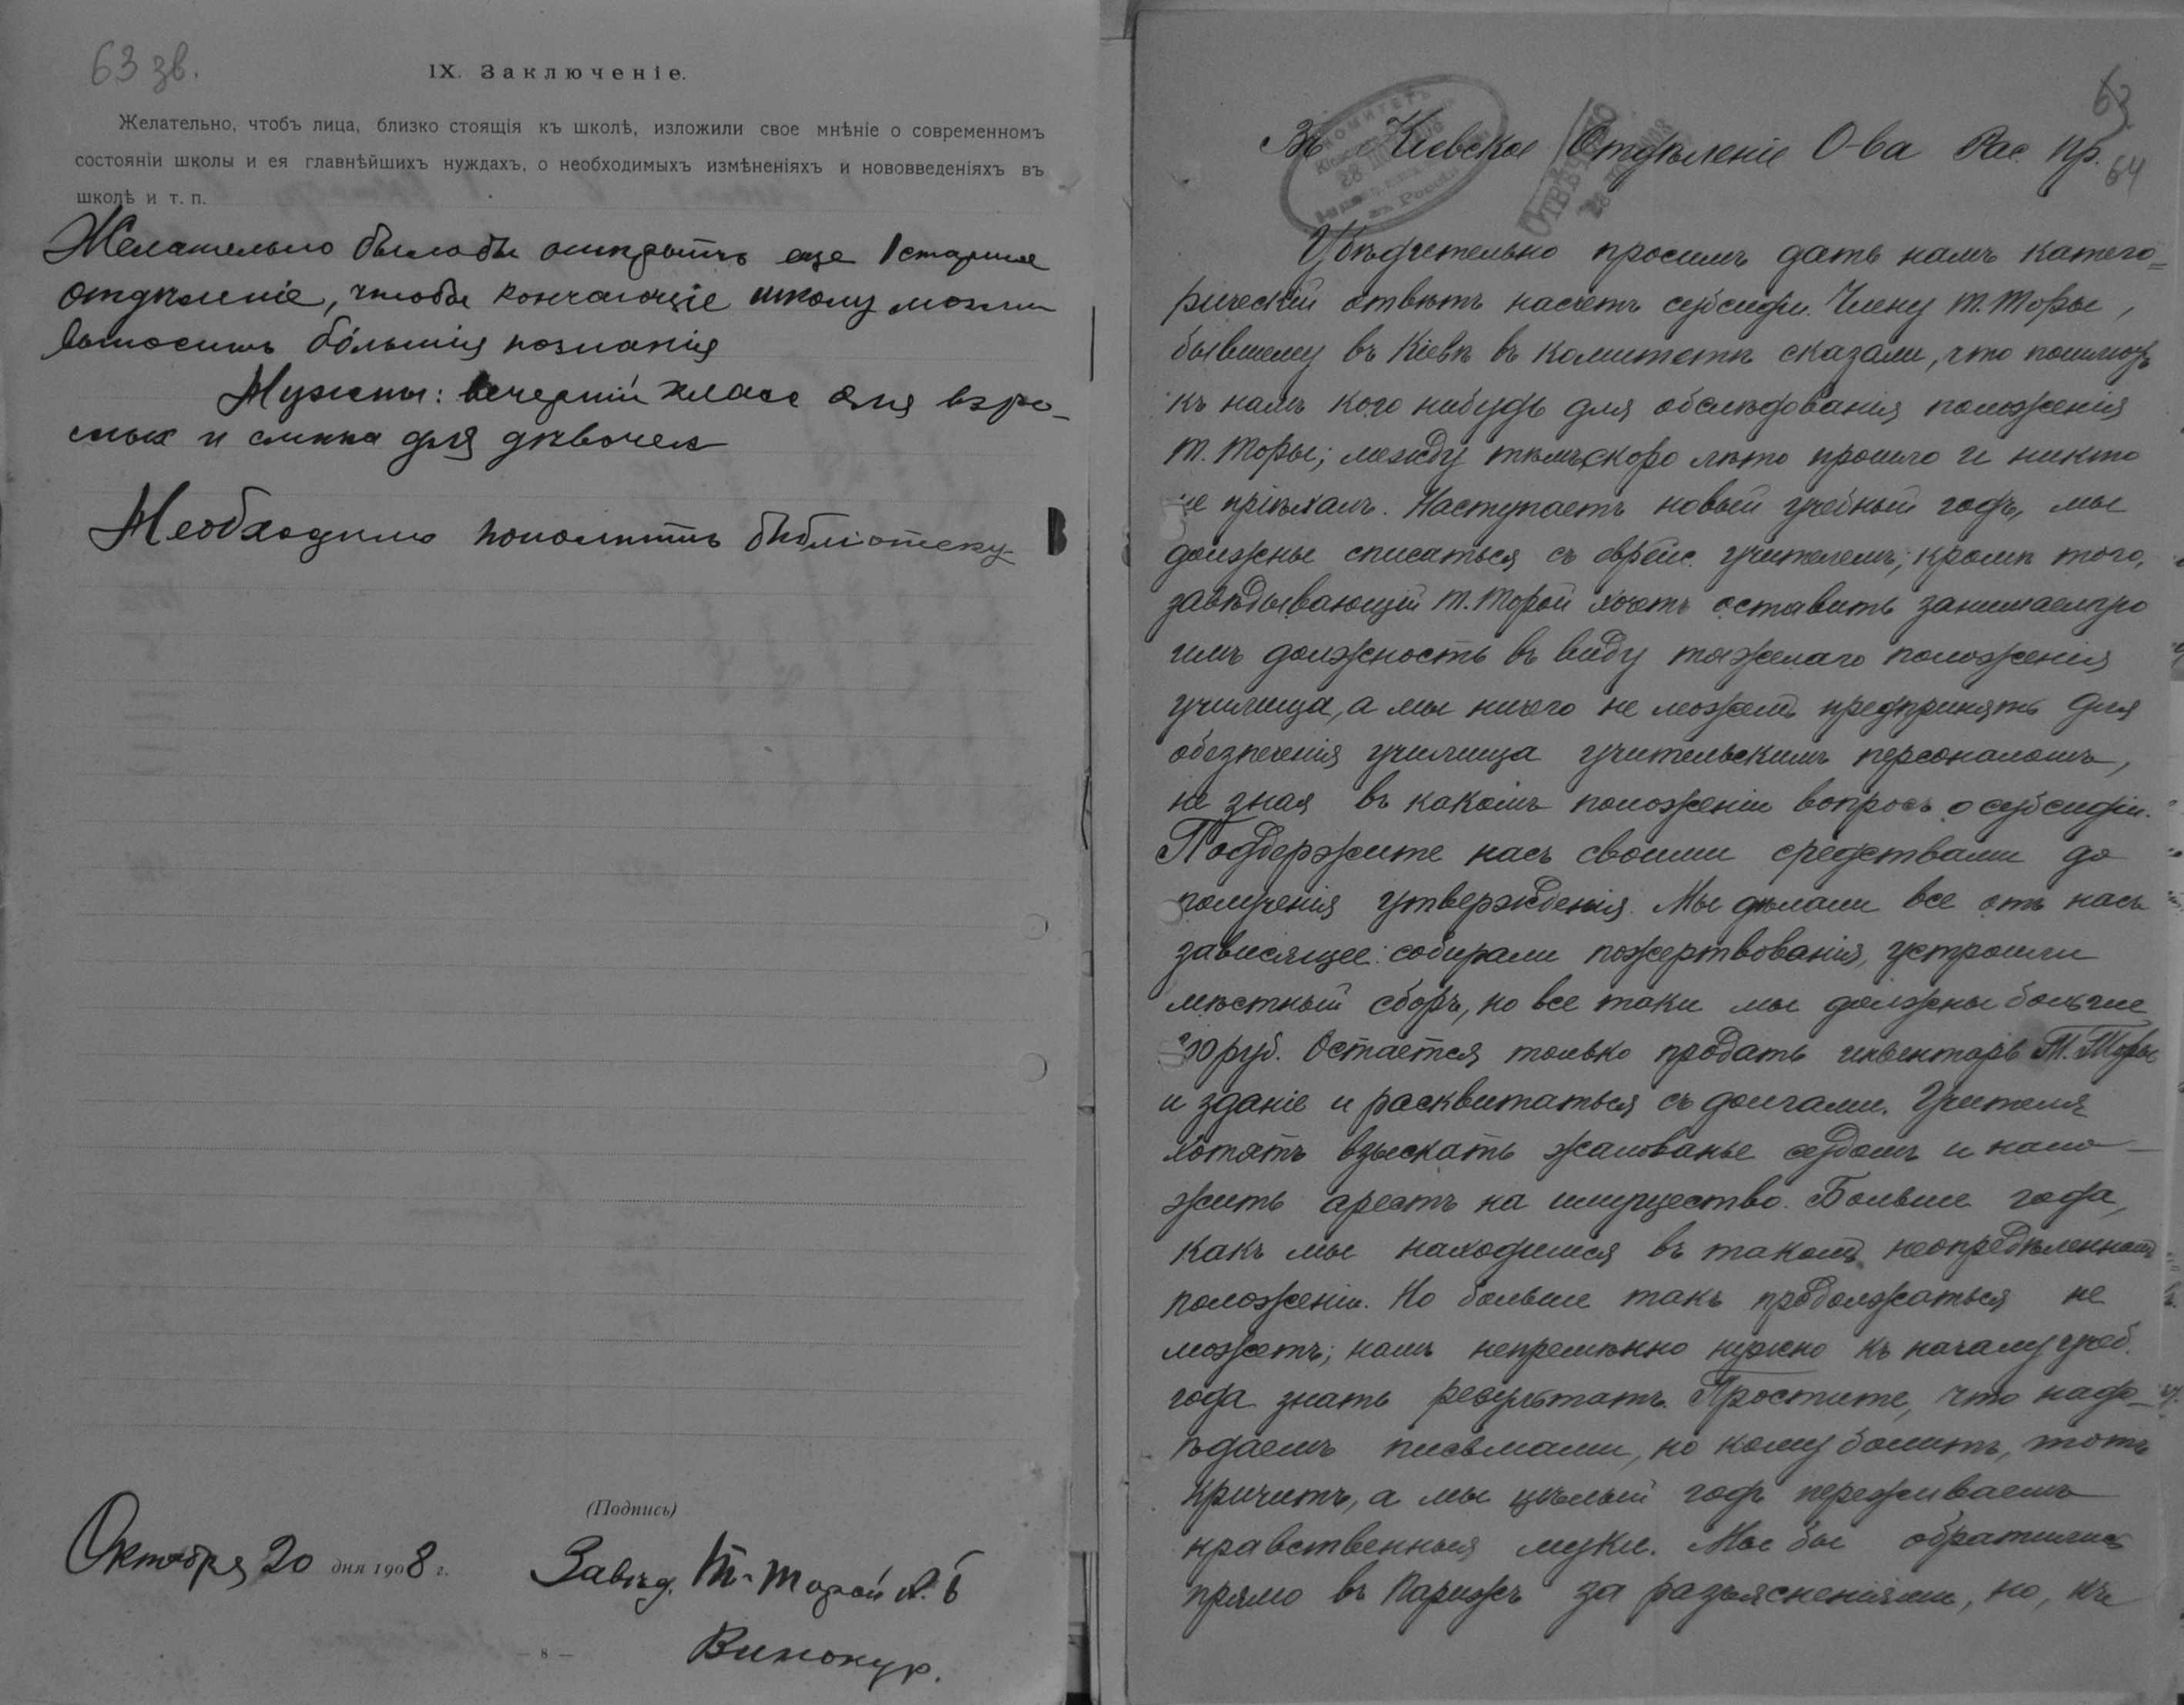 63 зв.
IX. Заключеніе.
Желательно, чтобъ лица, близко стоящія къ школѣ, изложили свое мнѣніе о современномъ
состояніи школы и ея главнѣйшихъ нуждахъ, о необходимыхъ измѣненіяхъ и нововведеніяхъ въ
школѣ и т. п.
Желательно было бы открыть еще 1 старшее
отдѣленіе, чтобы кончающіе школу могли
выносить бóльшія познанія
Нужны: вечерній класс для взро-
слых и смѣна для дѣвочек
Необходимо пополнить библіотеку
(Подпись)
Октября 20 дня 1908 г.
Завѣд. Т-Торой А. Б
Винокур.
— 8 —
63
64
Въ Кіевское Отдѣленіе О-ва Рас. пр.
КОМИТЕТЪ
въ Россіи
ОТВѢЧЕНО
Убѣдительно просимъ дать намъ катего=
рическій отвѣтъ насчетъ субсидіи. Члену Т. Торы,
бывшему въ Кіевѣ въ комитетѣ сказали, что пошлютъ
къ намъ кого нибудь для обслѣдованія положенія
Т. Торы; между тѣмъ скоро лѣто прошло и никто
не пріѣхалъ. Наступаетъ новый учебный годъ, мы
должны списаться съ еврейс. учителемъ; кромѣ того,
завѣдывающій Т. Торой хочетъ оставить занимаемую
имъ должность въ виду тяжелаго положенія
училища, а мы ничего не можемъ предпринять для
обезпеченія училища учительскимъ персоналомъ,
не зная въ какомъ положеніи вопросъ о субсидіи.
Поддержите насъ своими средствами до
полученія утвержденія. Мы дѣлали все отъ насъ
зависящее: собирали пожертвованія, устроили
мѣстный сборъ, но все таки мы должны больше
руб. Остается только продать инвентарь Т. Торы
и зданіе и расквитаться съ долгами. Учителя
хотятъ взыскать жалованье судомъ и нало-
жить арестъ на имущество. Больше года,
какъ мы находимся въ такомъ неопредѣленномъ
положеніи. Но больше такъ продолжаться не
можетъ; намъ непремѣнно нужно къ началу учеб.
года знать результатъ. Простите, что надо-
ѣдаемъ письмами, но кому болитъ, тотъ
кричитъ, а мы цѣлый годъ переживаемъ
нравственныя муки. Мы бы обратились
прямо въ Парижъ за разъясненіями, но, къ